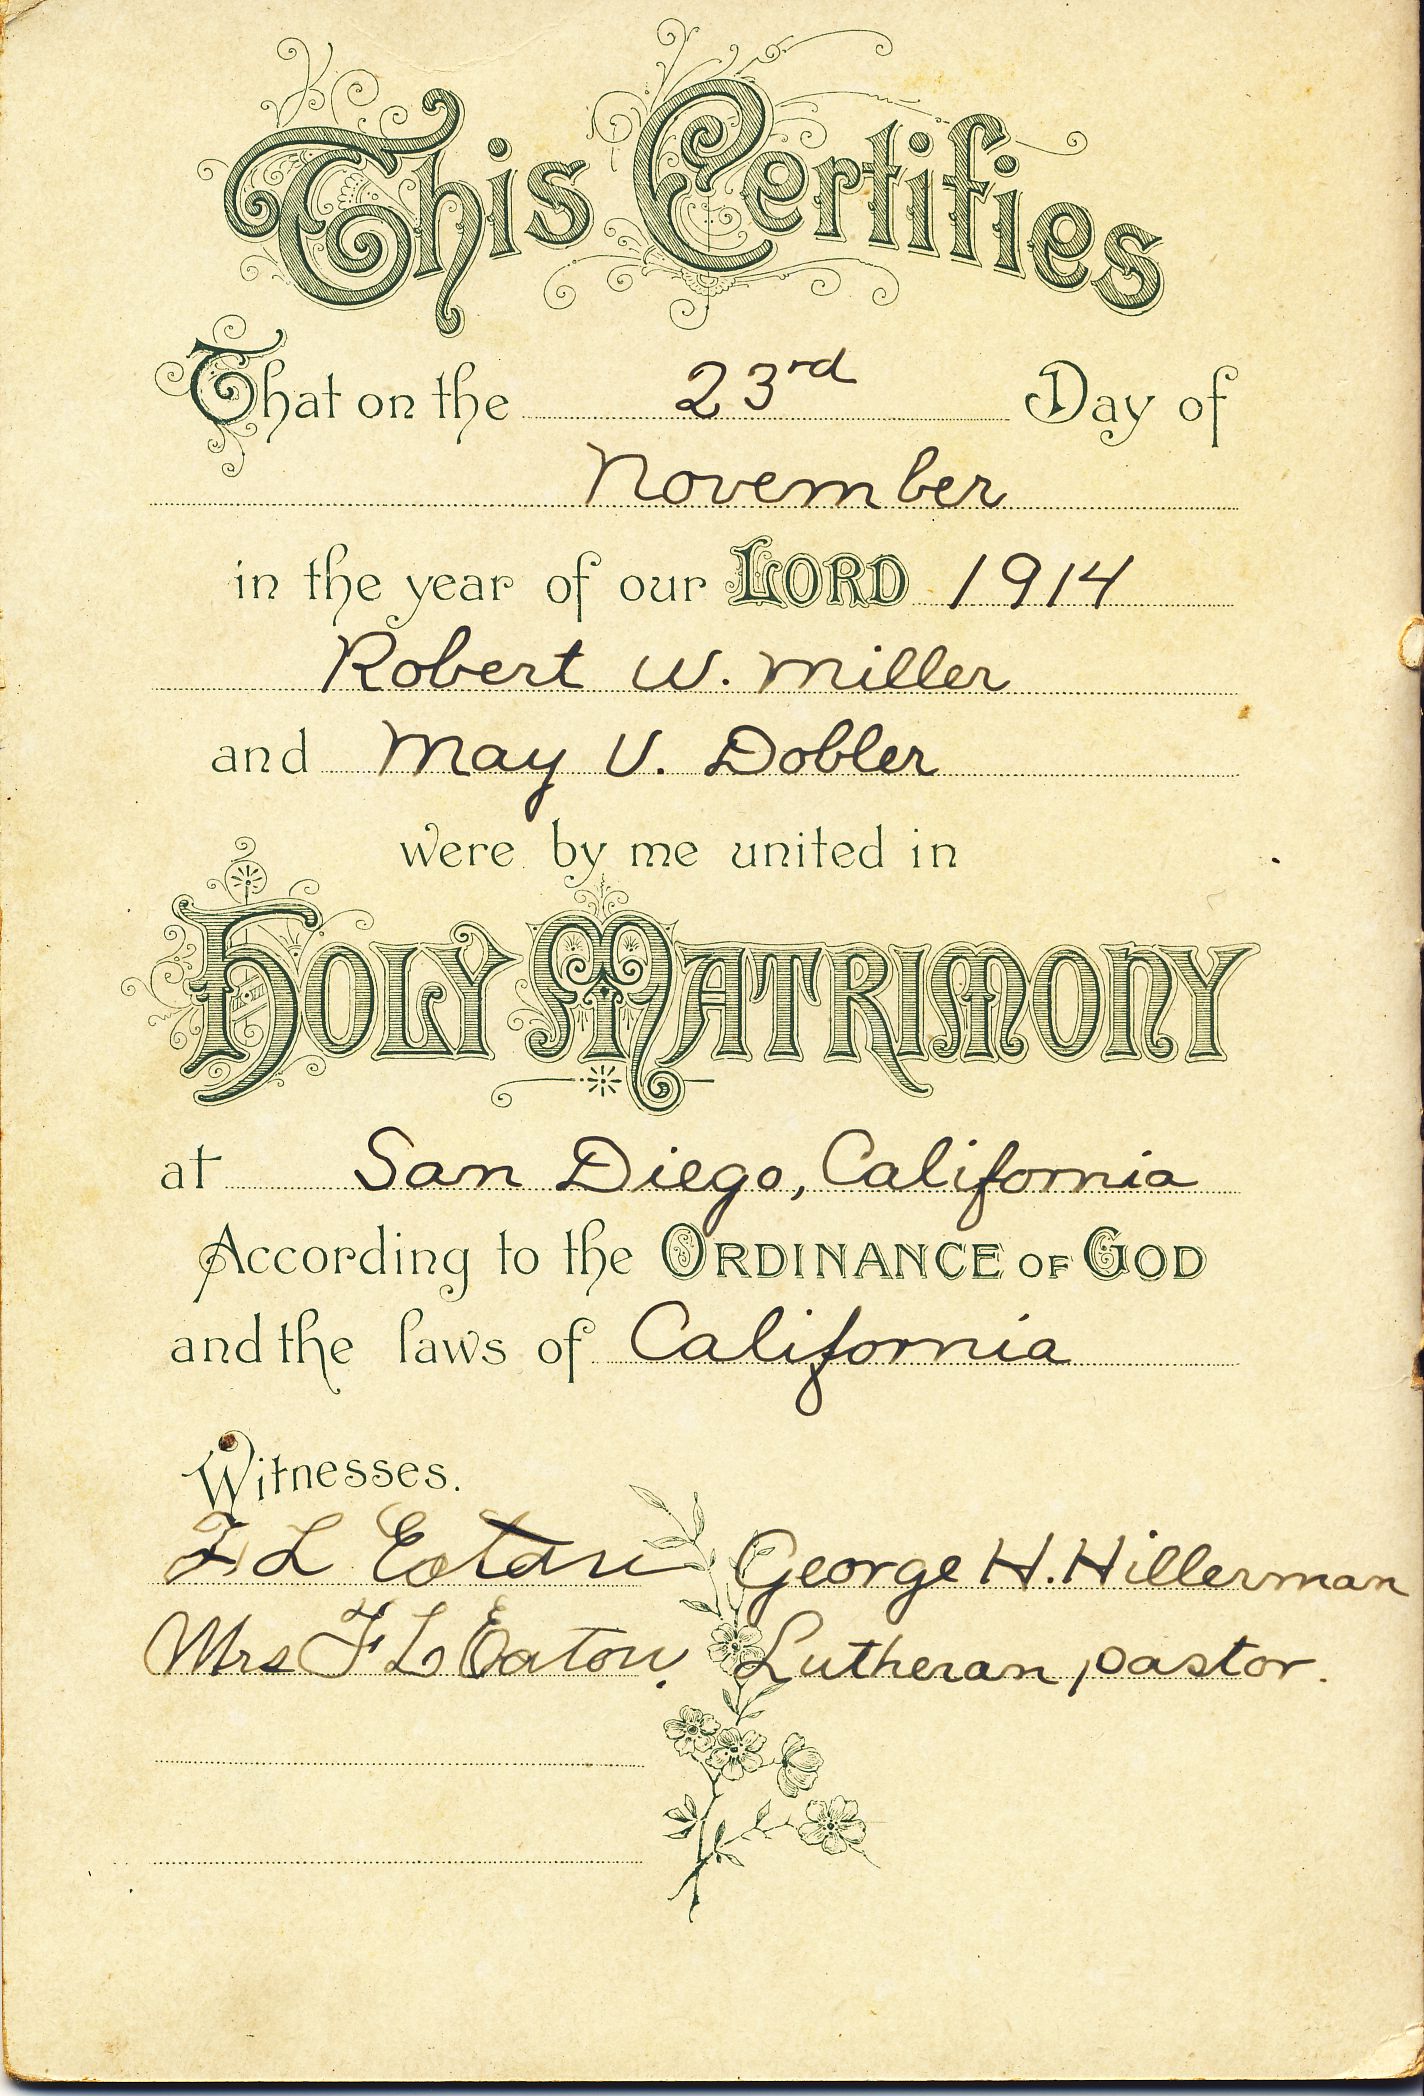 This Certifies
That on the 23rd Day of
November
in the year of our LORD 1914
Robert W. Miller
and May V. Dobler
were by me united in
HOLY MATRIMONY
at San Diego, California
According to the ORDINANCE OF GOD
and the laws of California
Witnesses.
F L Eaton George H. Hillerman
Mrs F L Eaton. Lutheran pastor.